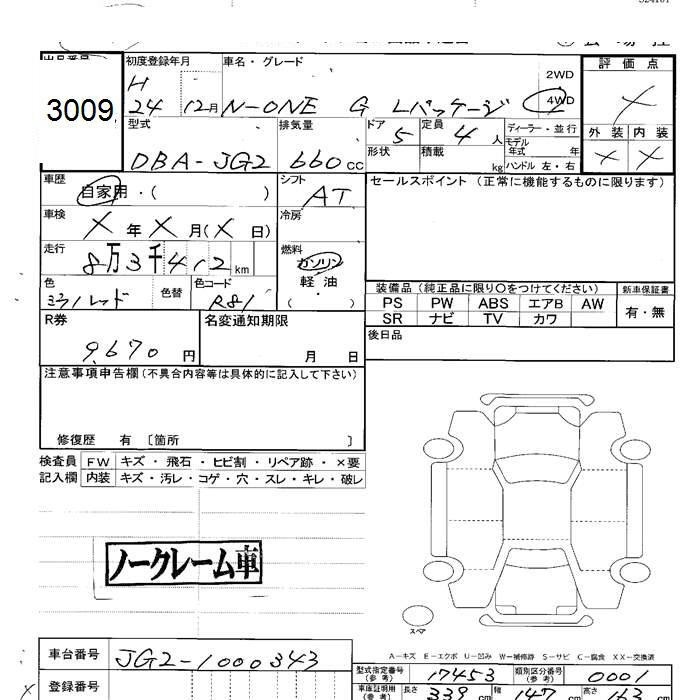 出品番号 初度登録年月 車名・グレード 評価点
3009 H 24 12月 N-ONE G Lパッケージ 2WD 4WD ×
外装 内装
× ×
型式 排気量 ドア 定員 ディーラー・並行
DBA-JG2 660cc 5 4人 モデル年式 年
形状 積載 kg ハンドル 左・右
車歴 シフト セールスポイント (正常に機能するものに限ります)
自家用・( ) AT
車検 冷房
×年×月(×日)
走行 燃料
8万3千412km ガソリン
軽油
( ・ )
色 色替 色コード
ミラノレッド R81
装備品 (純正品に限り○をつけてください) 新車保証書
PS PW ABS エアB AW 有・無
SR ナビ TV カワ
R券 名変通知期限 後日品
9,670円 月 日
注意事項申告欄(不具合内容等は具体的に記入して下さい)
修復歴 有 〔箇所 〕
検査員 FW キズ・飛石・ヒビ割・リペア跡・×要
記入欄 内装 キズ・汚レ・コゲ・穴・スレ・キレ・破レ
ノークレーム車
スペア
A-キズ E-エクボ U-凹み W-補修跡 S-サビ C-腐食 XX-交換済
車台番号 JG2-1000343
型式指定番号(参考) 17453 類別区分番号(参考) 0001
登録番号
車庫証明用(参考) 長さ 339cm 幅 147cm 高さ 163cm